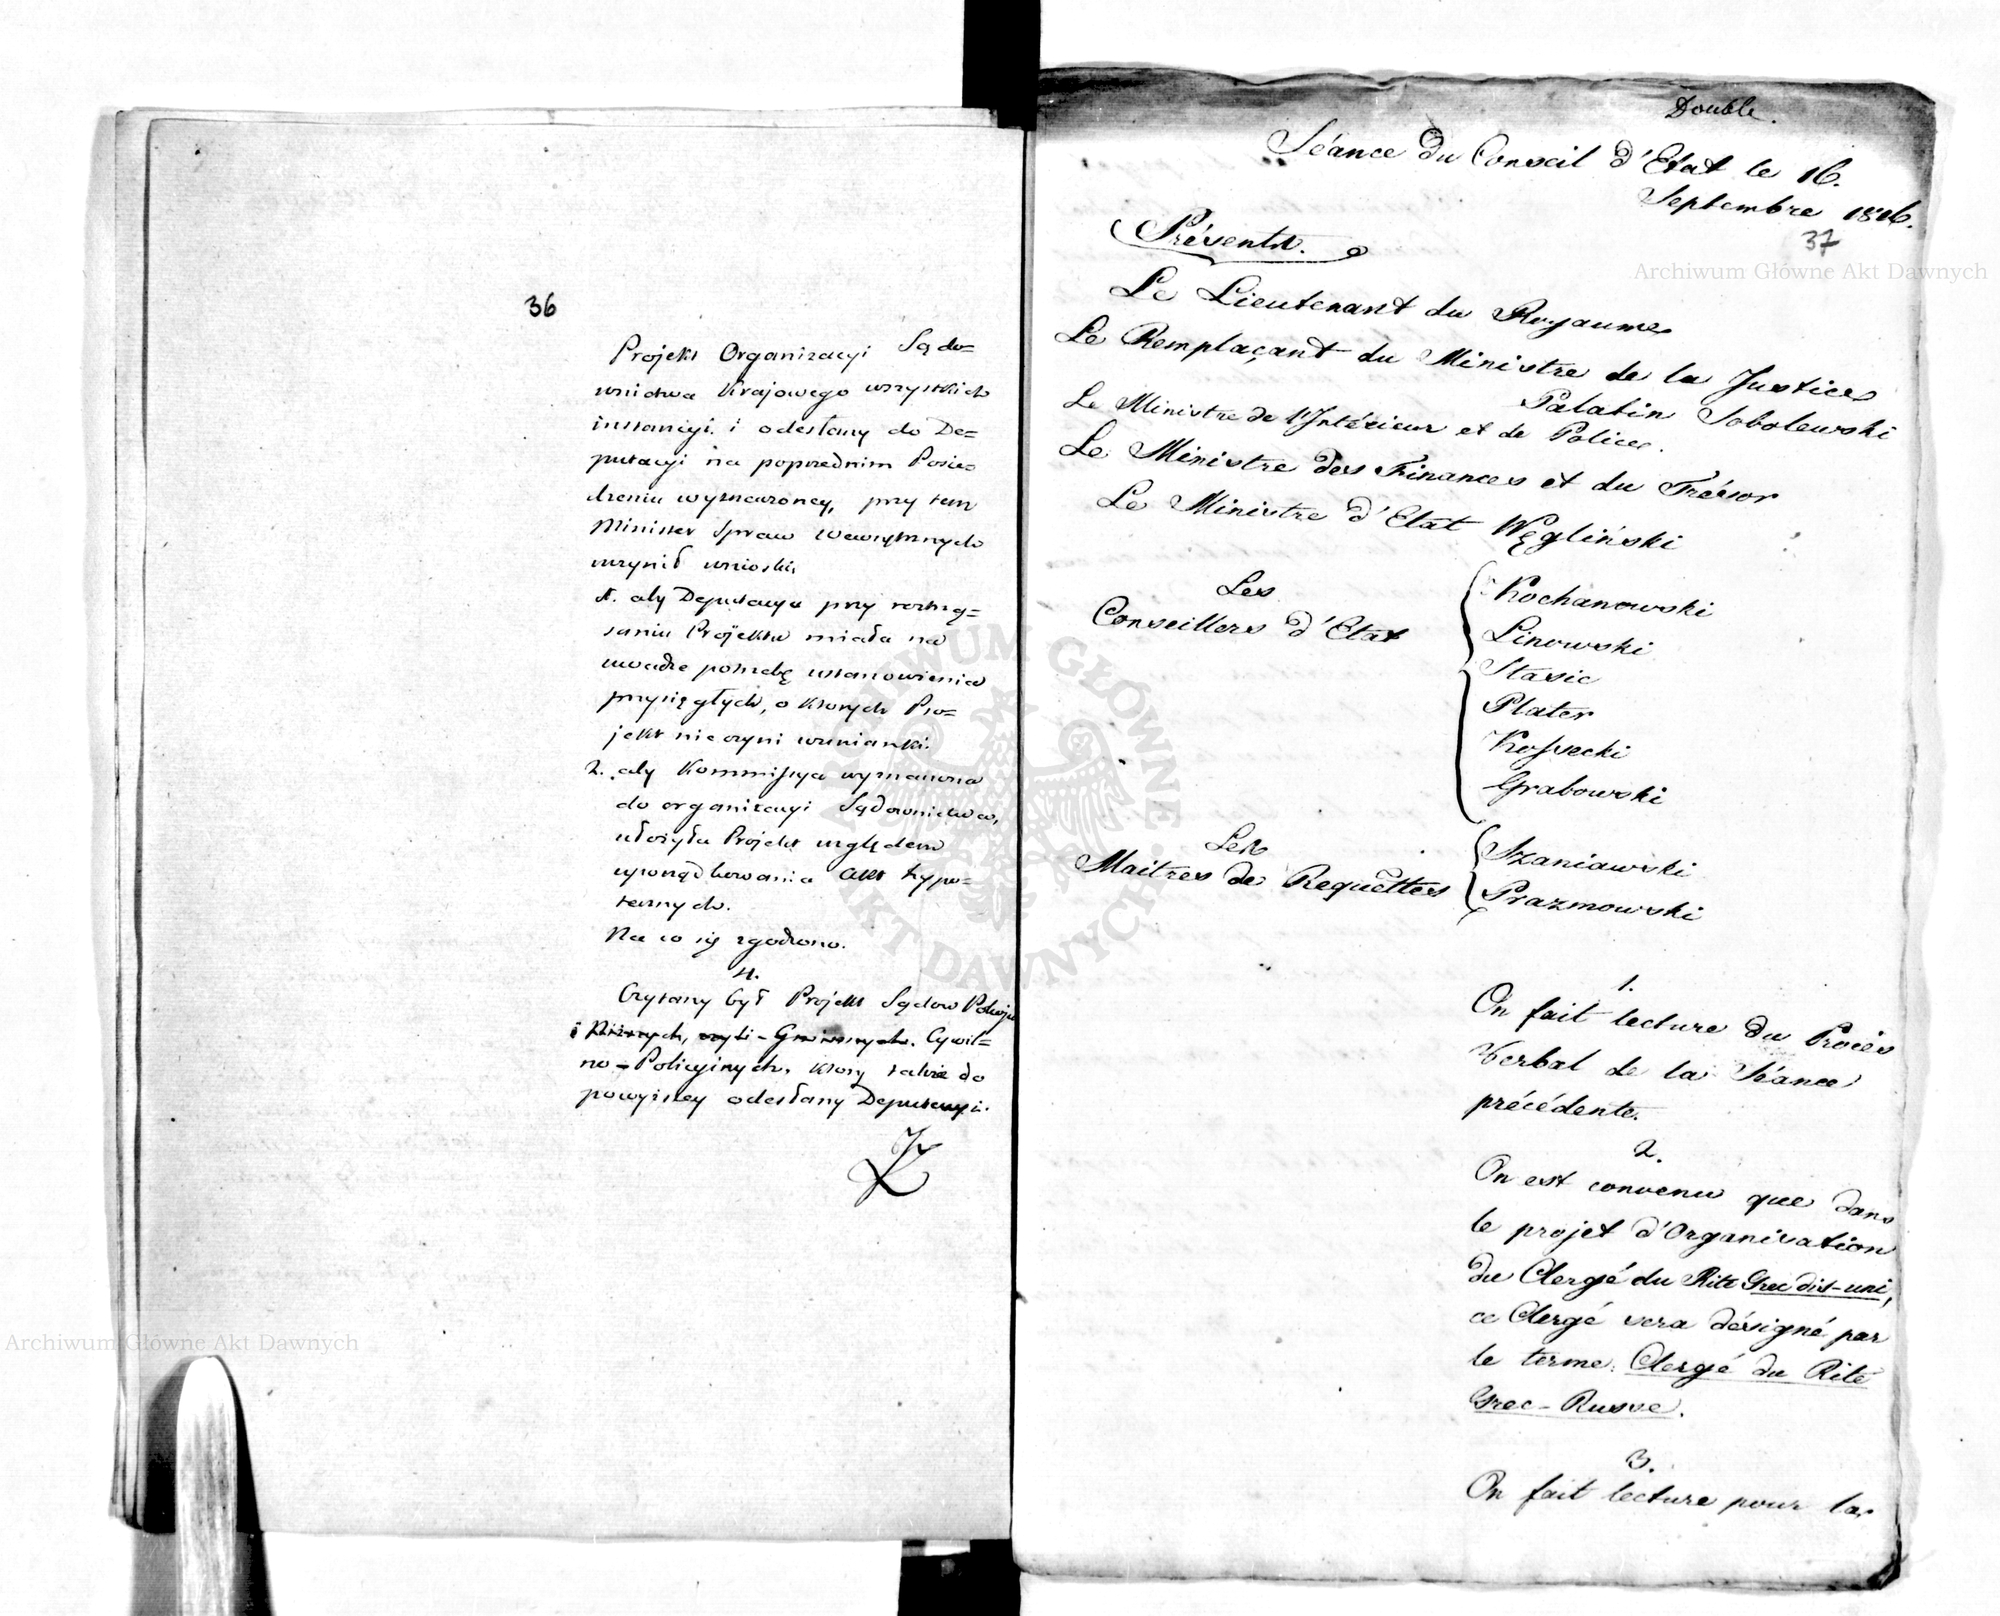 36
Projekt Organizacyi Sądo=
wnictwa Krajowego wszystkich
instancyi i odesłany do De=
putacyi na poprzednim Posie=
dzeniu wyznaczoney, przy tem
Minister Spraw Wewnętrznych
uczynił wnioski,
1. aby Deputacya przy roztrzą=
saniu Projektu miała na
uwadze potrzebę ustanowienia
przysięgłych, o ktorych Pro=
jekt nie czyni wzmianki.
2. aby Kommissya wyznaczona
do organizacyi Sądownictwa,
ułożyła Projekt względem
uporządkowania Akt hypo=
tecznych.
Na co się zgodzono.
4.
Czytany był Projekt Sądow Pokoju
i Niższych, czyli - Gminnych. Cywil=
no - Policyinych, ktory także do
powyższey odesłany Deputacyi.
Double.
Séance du Conseil d'Etat le 16.
Septembre 1816.
37
Présents.
Le Lieutenant du Royaume
Le Remplaçant du Ministre de la Justice
Palatin Sobolewski
Le Ministre de l'Intérieur et de Police.
Le Ministre des Finances et du Trésor
Le Ministre d'Etat Węgliński
Les
Conseillers d'Etat
Kochanowski
Linowski
Stasic
Plater
Kossecki
Grabowski
Les
Maitres de Requêttes
Szaniawski
Prazmowski
1.
On fait lecture du Procès
Verbal de la Séance
précédente.
2.
On est convenu que dans
le projet d'Organisation
du Clergé du Rite Grec dis-uni,
ce Clergé sera désigné par
le terme: Clergé du Rite
Grec - Russe.
3.
On fait lecture pour la
Archiwum Główne Akt Dawnych
Archiwum Główne Akt Dawnych
ARCHIWUM GŁÓWNE AKT DAWNYCH